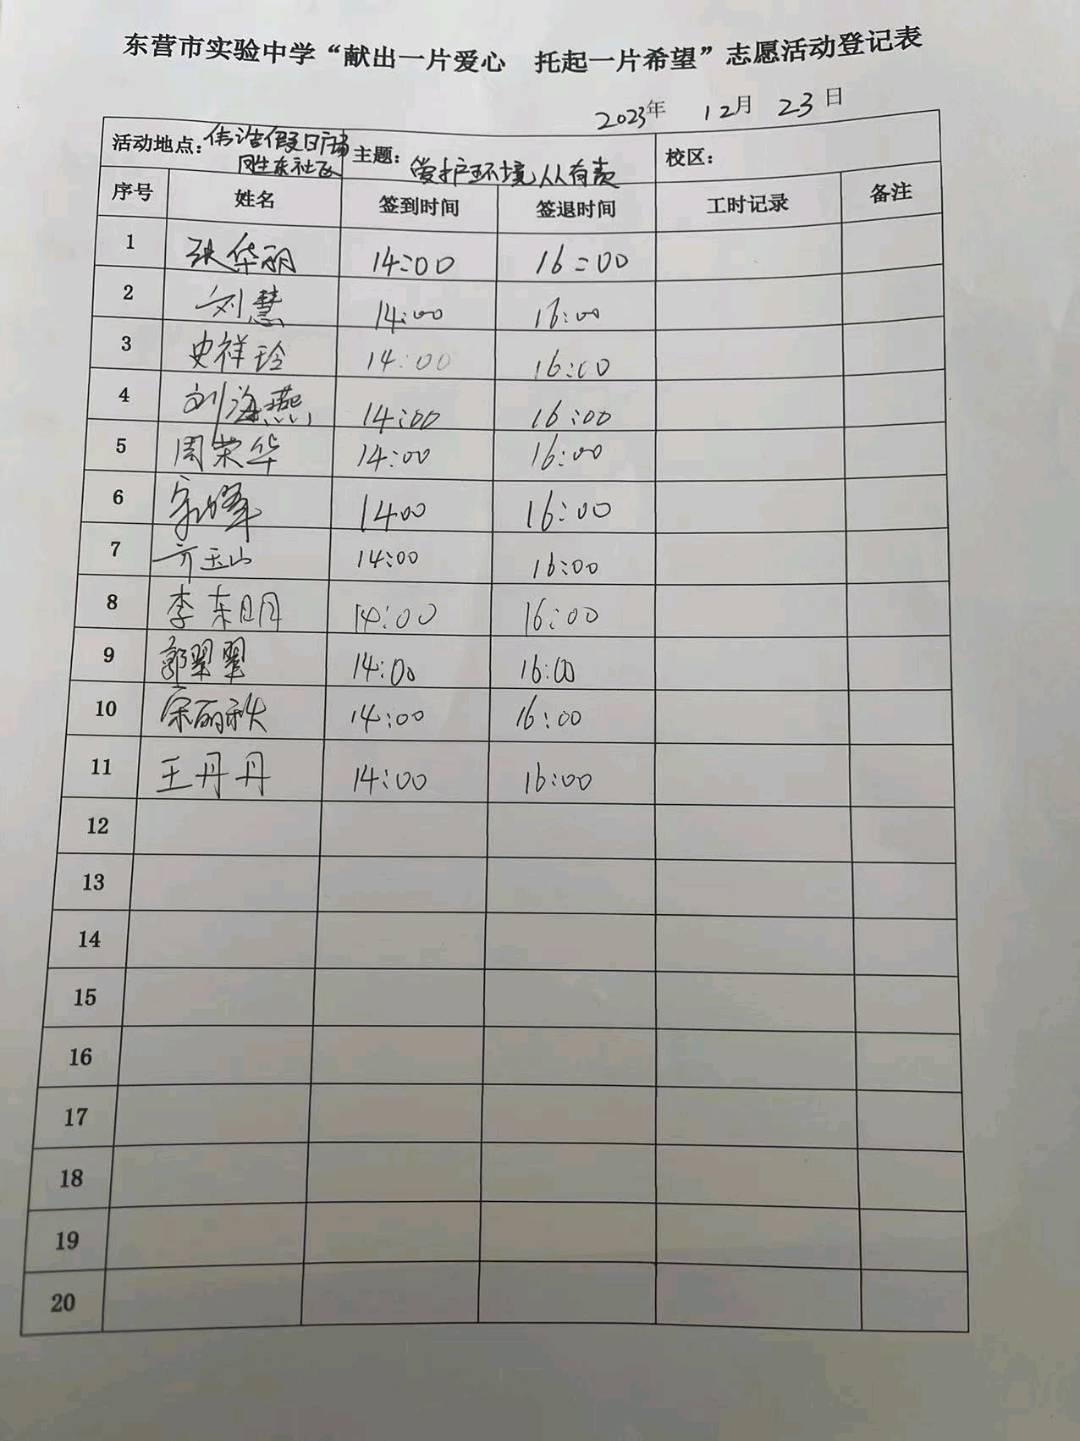 东营市实验中学“献出一片爱心 托起一片希望”志愿活动登记表
2023年 12月 23日
活动地点：伟浩假日广场 主题：爱护环境从有责 校区：
胜东社区
序号 姓名 签到时间 签退时间 工时记录 备注
1 张华丽 14:00 16:00
2 刘慧 14:00 16:00
3 史祥玲 14:00 16:00
4 刘海燕 14:00 16:00
5 周荣华 14:00 16:00
6 14:00 16:00
7 亓玉山 14:00 16:00
8 李东明 14:00 16:00
9 郭翠翠 14:00 16:00
10 宋丽秋 14:00 16:00
11 王丹丹 14:00 16:00
12
13
14
15
16
17
18
19
20